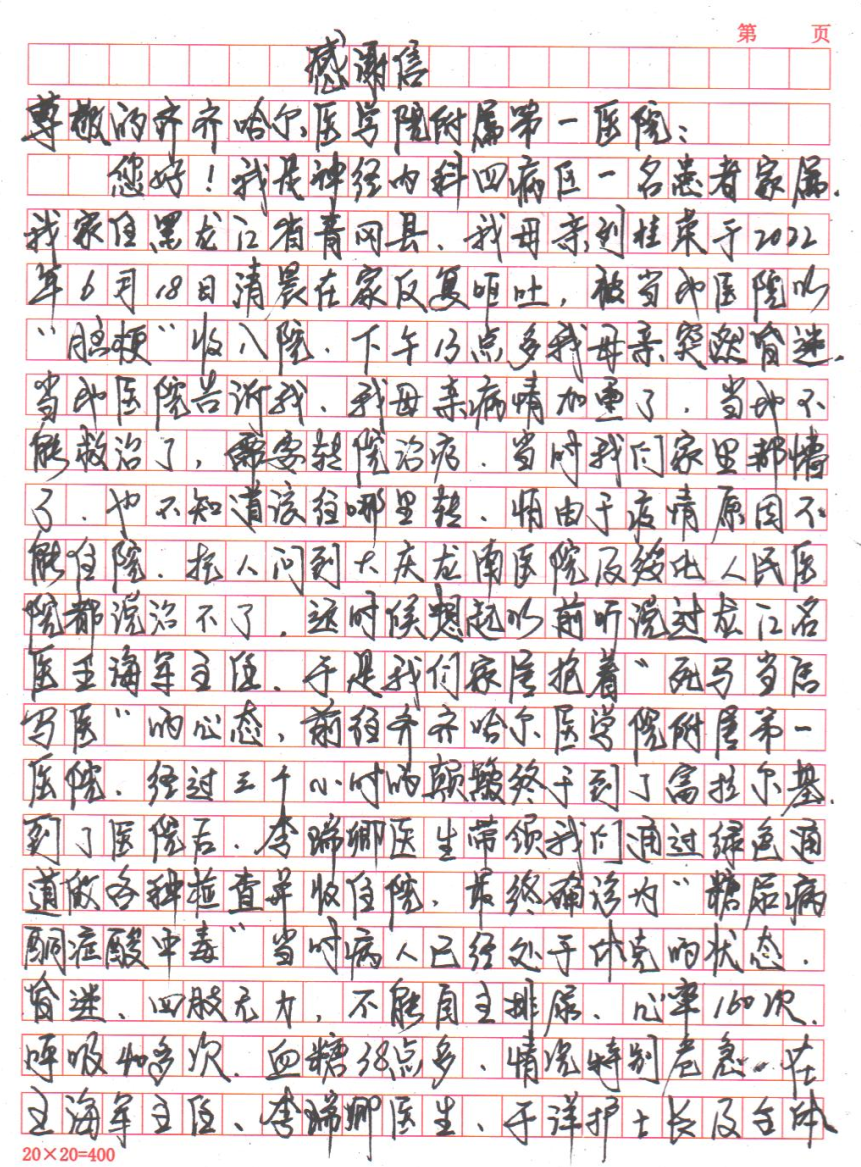 第 页
感谢信
尊敬的齐齐哈尔医学院附属第一医院：
您好！我是神经内科四病区一名患者家属.
我家住黑龙江省青冈县、我母亲刘桂荣于2022
年6月18日清晨在家反复呕吐，被当地医院以
“脑梗”收入院.下午13点多我母亲突然昏迷.
当地医院告诉我、我母亲病情加重了.当地不
能救治了，需要转院治疗.当时我们家里都懵
了.也不知道该往哪里转、怕由于疫情原因不
能住院.托人问到大庆龙南医院及绥化人民医
院都说治不了.这时候想起以前听说过龙江名
医王海军主任.于是我们家属抱着“死马当活
马医”的心态，前往齐齐哈尔医学院附属第一
医院.经过三个小时的颠簸终于到了富拉尔基.
到了医院后.李瑞卿医生带领我们通过绿色通
道做各种检查并收住院.最终确诊为“糖尿病
酮症酸中毒”当时病人已经处于休克的状态.
昏迷、四肢无力，不能自主排尿、心率160次.
呼吸40多次.血糖38点多、情况特别危急..在
王海军主任、李瑞卿医生、于洋护士长及全体
20×20=400